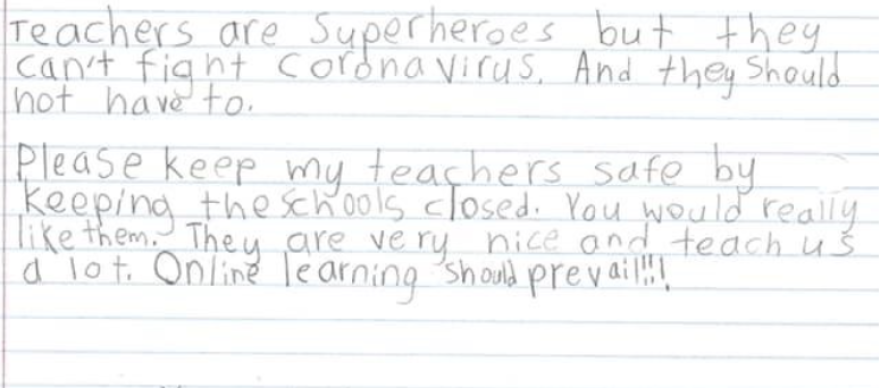 Teachers are Superheroes but they
can't fight Coronavirus. And they Should
not have to.
Please keep my teachers safe by
keeping the schools closed. You would really
like them. They are very nice and teach us
a lot. Online learning should prevail!!!!